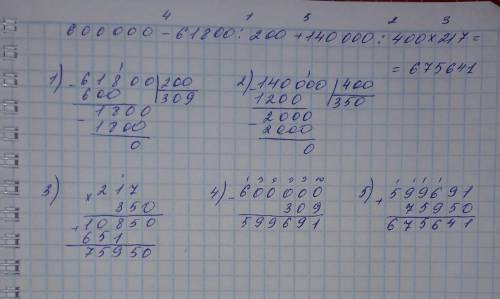 4 1 5 2 3
600000 - 61800 : 200 + 140000 : 400 × 217 =
= 675641
1) - 61800 | 200
600 | 309
- 1800
1800
0
2) - 140000 | 400
1200 | 350
- 2000
2000
0
3) × 217
350
+ 10850
651
75950
4) - 600000
309
599691
5) + 599691
75950
675641